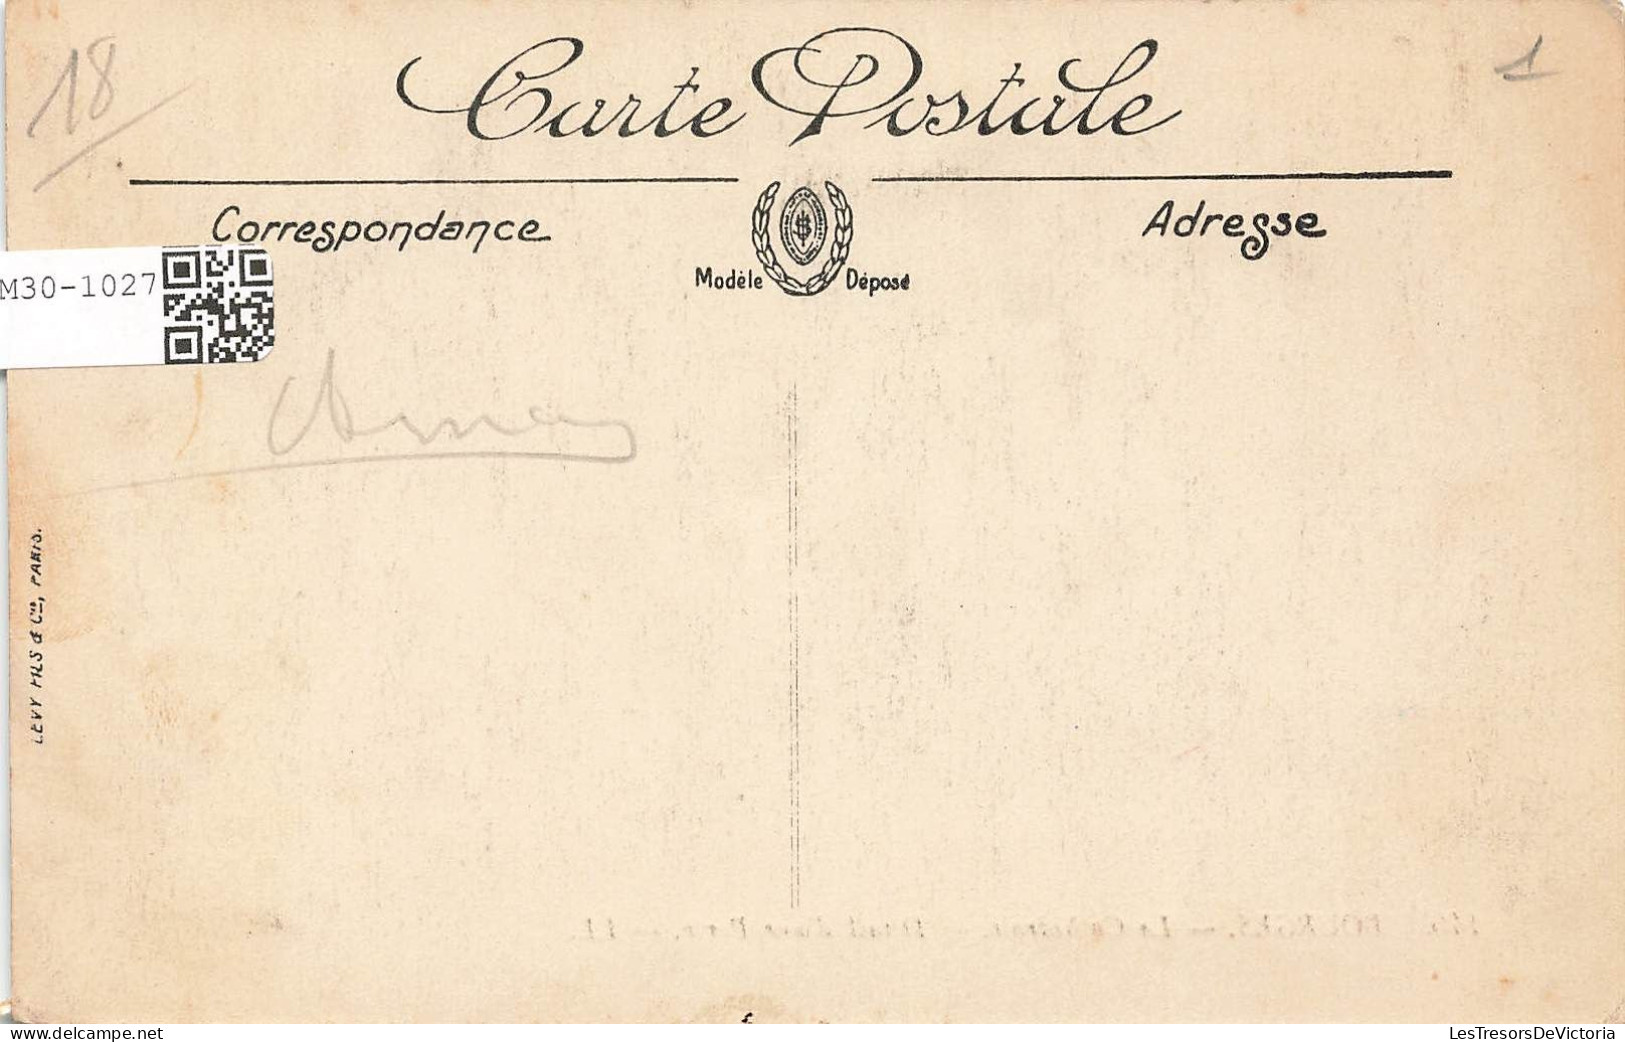 18
1
Carte Postale
Correspondance
Adresse
Modèle Déposé
M30-1027
LEVY FILS & Cie, PARIS.
www.delcampe.net
LesTresorsDeVictoria